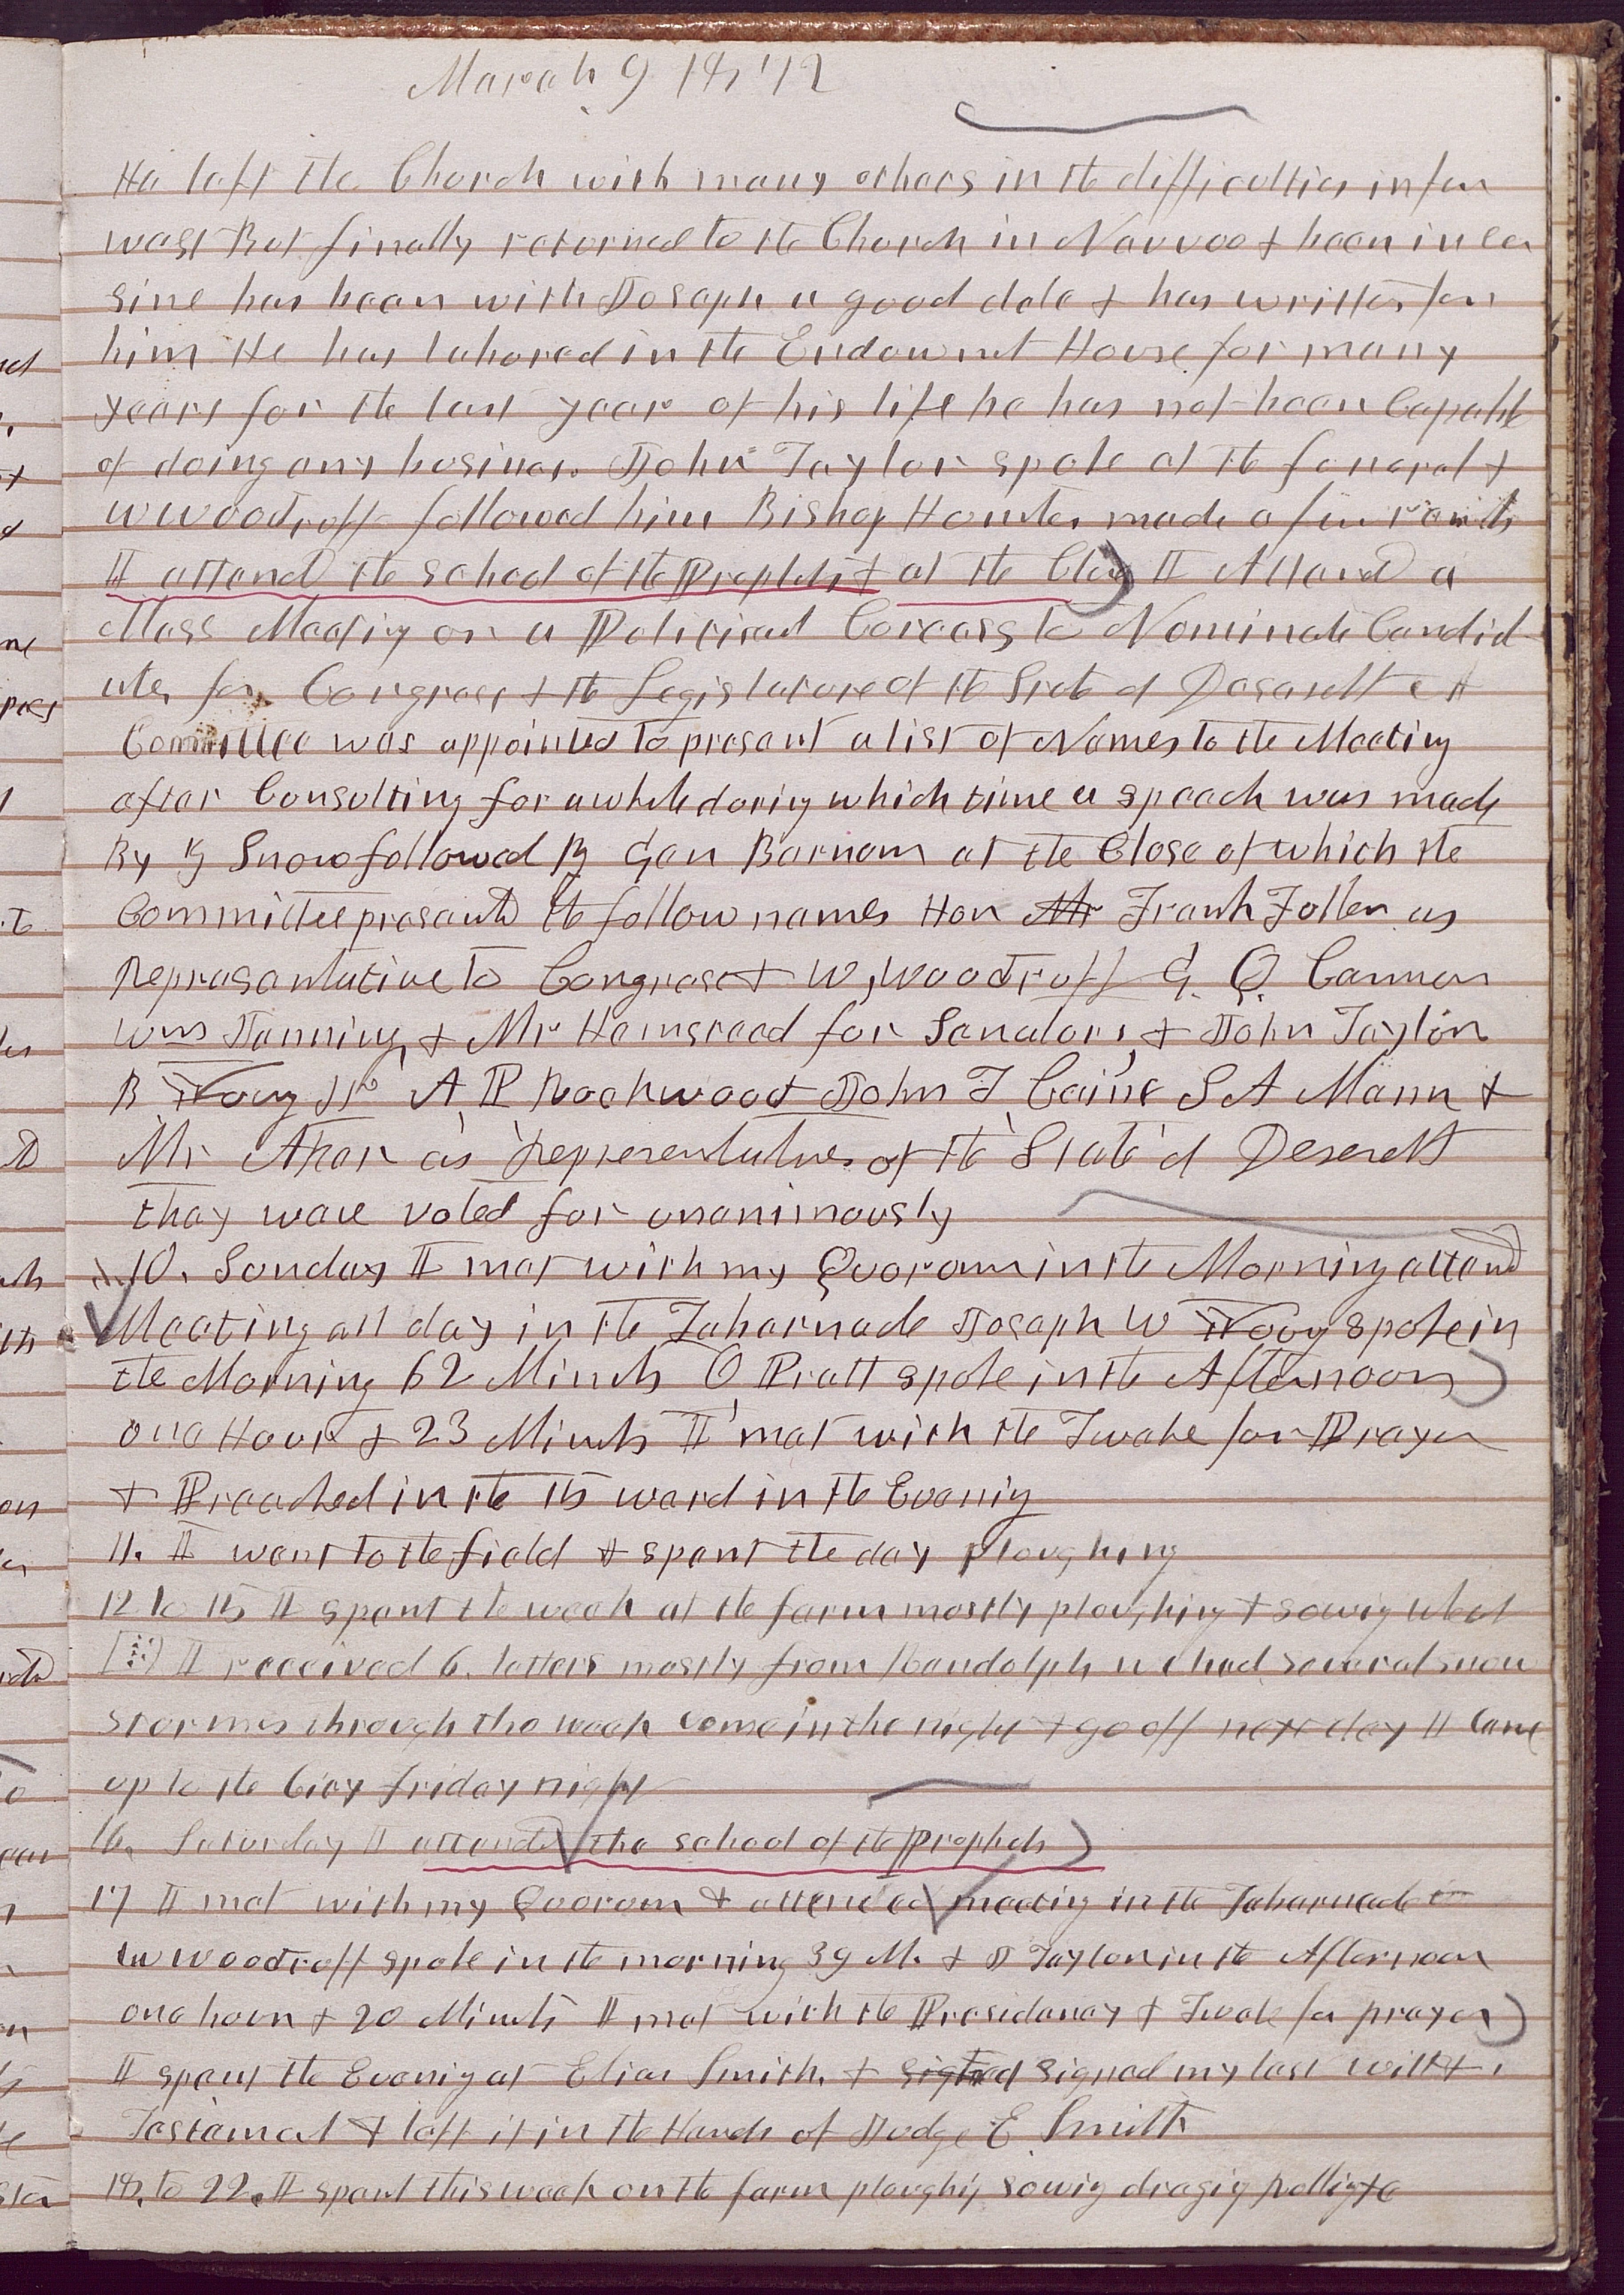 March 9th 1872
He left the Church with many others in the difficulties in far
west But finally returned to the Church in Nauvoo & been in ever
sine has been with Joseph a good dele & has written for
him He has labored in the Endowmet House for many
years for the last year of his life he has not been Capable
of doing any business. John Taylor spoke at the funeral &
W Woodruff followed him Bishop Hunter made a few remarks
I attend the school of the Prophets & at the Close I Attend a
Mass Meetig or a Political Corcors to Nominate Candid
ates for Congress & the Legislature of the State of Desarett A
Committee was appointed to present a list of Names to the Meeting
after Consulting for a while durig which time a speech was made
By Z Snow followed By Gen Barnum at the Close of which the
Committee presentd the follow names Hon Mr Frank Fuller as
Represantative to Congress & W, Woodruff G. Q. Cannon
Wm Jenning, & Mr Hemsteed for Senators, & John Taylor
B Young Jr A P Rockwood John T Caine S A Mann &
Mr Aker as Representatives of the State of Deserett
they ware voted for unanimously
10. Sunday I met with my Quorum in the Morning attend
Meeting all day in the Tabernacle Joseph W Young spoke in
the Morning 62 Minuts O Pratt spoke in the Afternoon
one Hour & 23 Minuts I met with the Twelve for Prayer
& Preached in the 15 ward in the Evenig
11. I went to the field & spent the day ploughing
12 to 15 I spent the week at the farm mostly ploughing & sowig wheat
I received 6. letters mostly from Randolph we had several snow
stormes through the week come in the night & go off next day I Came
up to the City friday night
16. Saturday I attend the school of the Prophets
17 I met with my Quorum & attended meetig in the Tabernacle
W Woodruff spoke in the morning 39 M. & J Taylor in the Afternoon
one hour & 20 Minuts I met with the Presidency & Twelve for prayer
I spent the Evenig at Elias Smith. & signed signed my last will &
Testament & left it in the Hands of Judge E Smith
18, to 22. I spent this week on the farm ploughig sowig dragig